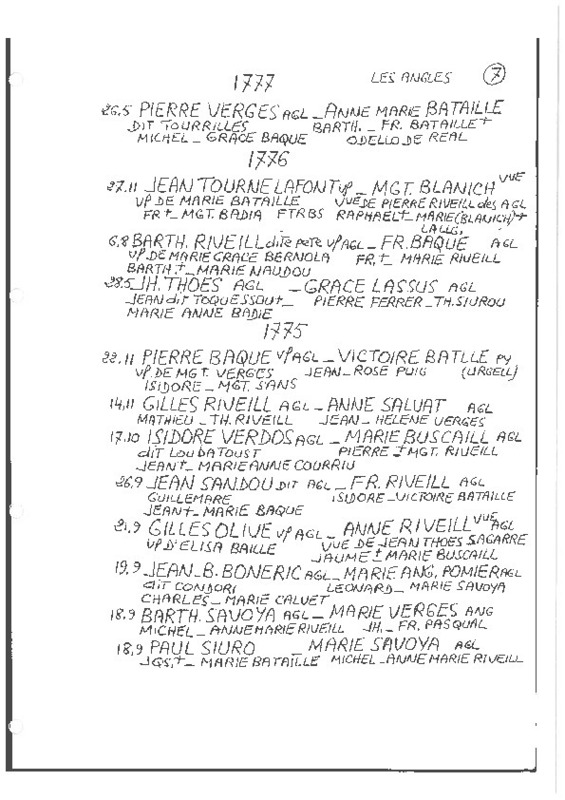 1777 LES ANGLES 7
26.5 PIERRE VERGES AGL _ ANNE MARIE BATAILLE
DIT TOURRILLES BARTH. _ FR. BATAILLE +
MICHEL _ GRACE BAQUE ODELLO DE REAL
1776
27.11 JEAN TOURNE LAFONT vp _ MGT. BLANICH VUE
VP DE MARIE BATAILLE VUE DE PIERRE RIVEILL des AGL
FR + MGT. BADIA FTRBS RAPHAEL + _ MARIE (BLANICH) +
LALLG.
6.8 BARTH. RIVEILL dit PERE VP AGL _ FR. BAQUE AGL
VP DE MARIE GRACE BERNOLA FR. + MARIE RIVEILL
BARTH. + _ MARIE NAUDOU
28.5 JH. THOES AGL _ GRACE LASSUS AGL
JEAN dit TOQUESSOUT _ PIERRE FERRER _ TH. SIUROU
MARIE ANNE BADIE
1775
22.11 PIERRE BAQUE VP AGL _ VICTOIRE BATLLE PY
VP. DE MGT. VERGES JEAN _ ROSE PUIG (URGELL)
ISIDORE _ MGT. SANS
14.11 GILLES RIVEILL AGL _ ANNE SALVAT AGL
MATHIEU _ TH. RIVEILL JEAN _ HELENE VERGES
17.10 ISIDORE VERDOS AGL _ MARIE BUSCAILL AGL
dit LOU DATOUST PIERRE + MGT. RIVEILL
JEAN + _ MARIE ANNE COURRIU
26.9 JEAN SANDOU DIT AGL _ FR. RIVEILL AGL
GUILLEMARE ISIDORE _ VICTOIRE BATAILLE
JEAN + _ MARIE BAQUE
21.9 GILLES OLIVE VP AGL _ ANNE RIVEILL VUE AGL
VP D'ELISA BAILLE VUE DE JEAN THOES SAGARRE
JAUME + MARIE BUSCAILL
19.9 JEAN _ B. BONERIC AGL _ MARIE ANG. POMIER AGL
dit CONDORI LEONARD _ MARIE SAVOYA
CHARLES _ MARIE CALVET
18.9 BARTH. SAVOYA AGL _ MARIE VERGES ANG
MICHEL _ ANNE MARIE RIVEILL JH. _ FR. PASQUAL
18.9 PAUL SIURO _ MARIE SAVOYA AGL
JQS. + _ MARIE BATAILLE MICHEL _ ANNE MARIE RIVEILL